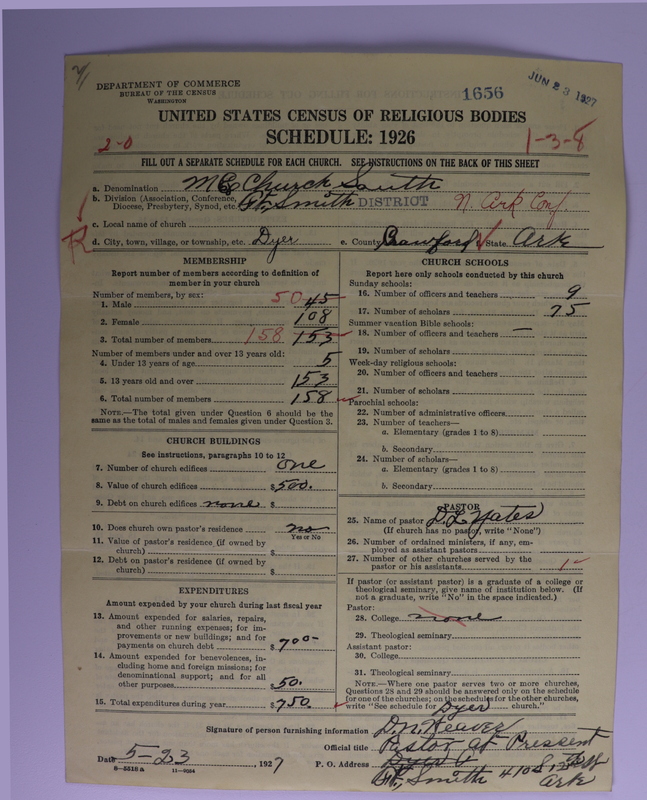 DEPARTMENT OF COMMERCE
BUREAU OF THE CENSUS
WASHINGTON
1656
JUN 23 1927
UNITED STATES CENSUS OF RELIGIOUS BODIES
SCHEDULE: 1926
2-0
1-3-8
FILL OUT A SEPARATE SCHEDULE FOR EACH CHURCH. SEE INSTRUCTIONS ON THE BACK OF THIS SHEET
a. Denomination ME Church South
b. Division (Association, Conference, Diocese, Presbytery, Synod, etc. Ft. Smith DISTRICT N. Ark Conf.
c. Local name of church
R
d. City, town, village, or township, etc. Dyer e. County Crawford State Ark
MEMBERSHIP
Report number of members according to definition of
member in your church
Number of members, by sex:
1. Male 50 45
2. Female 108
3. Total number of members 158 153
Number of members under and over 13 years old:
4. Under 13 years of age 5
5. 13 years old and over 153
6. Total number of members 158
NOTE.—The total given under Question 6 should be the
same as the total of males and females given under Question 3.
CHURCH BUILDINGS
See instructions, paragraphs 10 to 12
7. Number of church edifices one
8. Value of church edifices $500.
9. Debt on church edifices none $
10. Does church own pastor's residence no
Yes or No
11. Value of pastor's residence (if owned by
church) $
12. Debt on pastor's residence (if owned by
church) $
EXPENDITURES
Amount expended by your church during last fiscal year
13. Amount expended for salaries, repairs,
and other running expenses; for im-
provements or new buildings; and for
payments on church debt $700-
14. Amount expended for benevolences, in-
cluding home and foreign missions; for
denominational support; and for all
other purposes $50.
15. Total expenditures during year $750.
CHURCH SCHOOLS
Report here only schools conducted by this church
Sunday schools:
16. Number of officers and teachers 9
17. Number of scholars 75
Summer vacation Bible schools:
18. Number of officers and teachers —
19. Number of scholars
Week-day religious schools:
20. Number of officers and teachers
21. Number of scholars
Parochial schools:
22. Number of administrative officers
23. Number of teachers—
a. Elementary (grades 1 to 8)
b. Secondary
24. Number of scholars—
a. Elementary (grades 1 to 8)
b. Secondary
PASTOR
25. Name of pastor D. L. Yates
(If church has no pastor, write "None")
26. Number of ordained ministers, if any, em-
ployed as assistant pastors
27. Number of other churches served by the
pastor or his assistants 1
If pastor (or assistant pastor) is a graduate of a college or
theological seminary, give name of institution below. (If
not a graduate, write "No" in the space indicated.)
Pastor:
28. College none
29. Theological seminary
Assistant pastor:
30. College
31. Theological seminary
NOTE.—Where one pastor serves two or more churches,
Questions 28 and 29 should be answered only on the schedule
for one of the churches; on the schedules for the other churches,
write "See schedule for Dyer church."
Signature of person furnishing information D. N. Weaver
Official title Pastor at Pressent
Date 5-23, 1927 P. O. Address Dyer
8-5518a 11-9054
Ft. Smith 410 S.
Ark